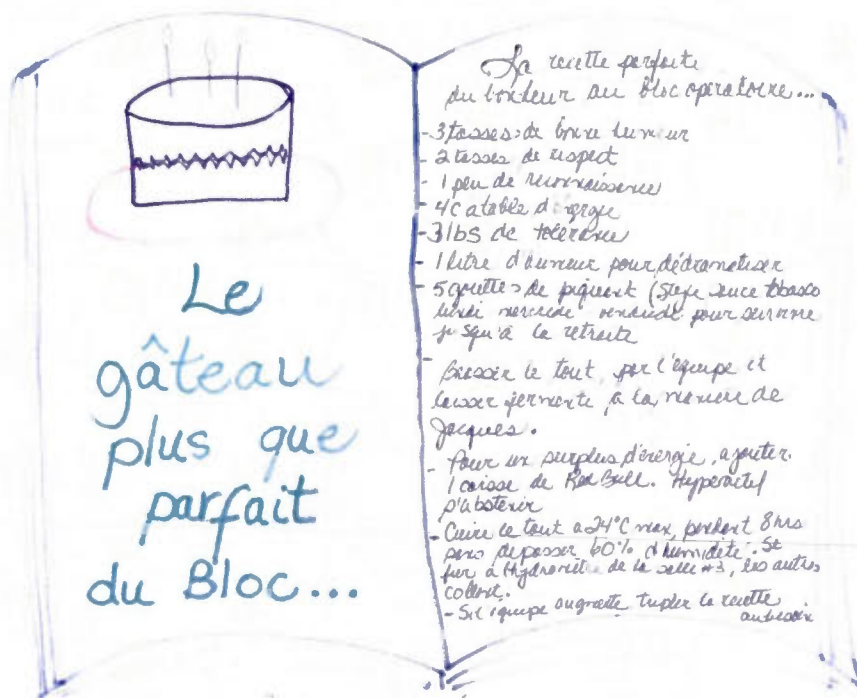 Le
gâteau
plus que
parfait
du Bloc...
La recette parfaite
du bonheur au bloc operatoire...
- 3 tasses de bonne humeur
- 2 tasses de respect
- 1 peu de reconnaissance
- 4 c a table d'
- 3 lbs de tolerance
- 1 litre d'humeur pour dédramatiser
- 5 gouttes de piquant ( sauce tobasco
lundi mercredi vendredi pour survivre
jusqu'à la retraite
- Brasser le tout, par l'équipe et
laisser à la maniere de
Jacques.
- Pour un surplus d'énergie, ajouter
1 caisse de Red Bull. Hyperactif
s'abstenir
- Cuire le tout a 24°C max, pendant 8hrs
sans depasser 60% d'humidité. Se
fier à l' de la salle #3, les autres
- Si l'equipe augmente tripler la recette
au besoin